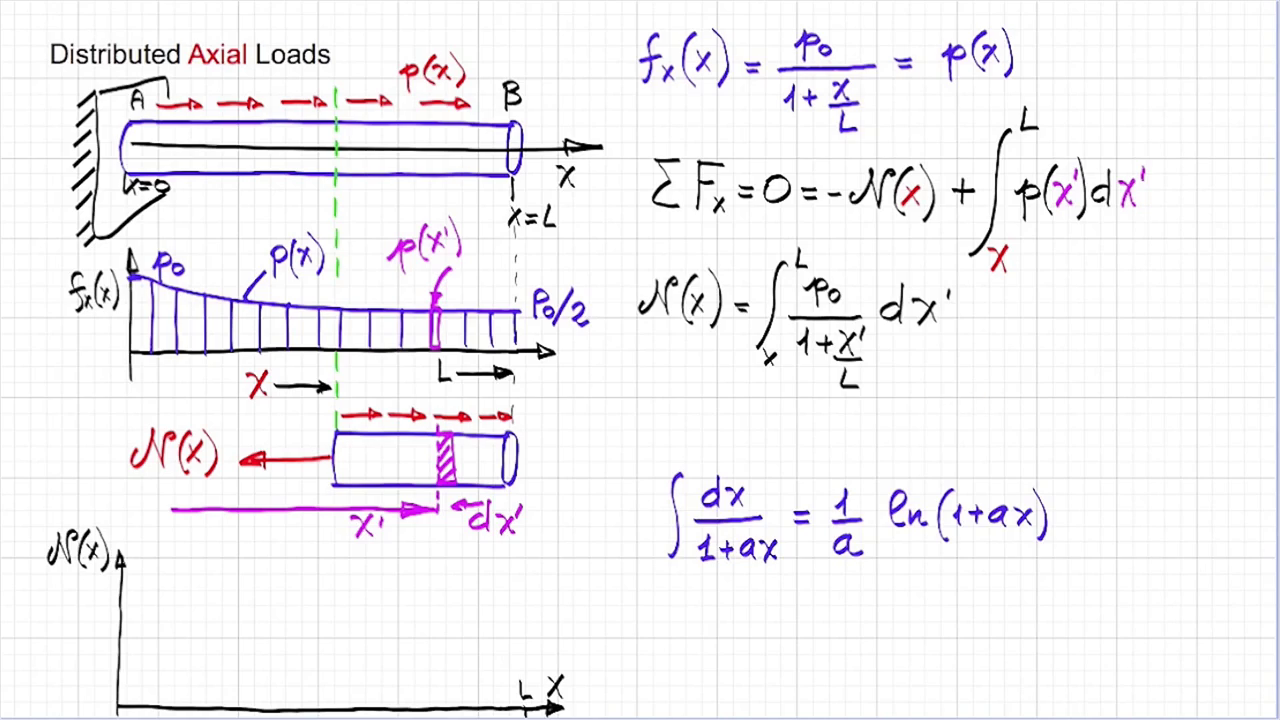 Distributed Axial Loads
p(x)
A
B
x=0
x
x=L
fx(x)
p0
p(x)
p(x')
p0/2
x
L
N(x)
x'
dx'
N(x)
L
x
fx(x) = p0 / (1 + x/L) = p(x)
∑Fx = 0 = -N(x) + ∫_x^L p(x')dx'
N(x) = ∫_x^L p0 / (1 + x'/L) dx'
∫ dx / (1+ax) = 1/a ln(1+ax)